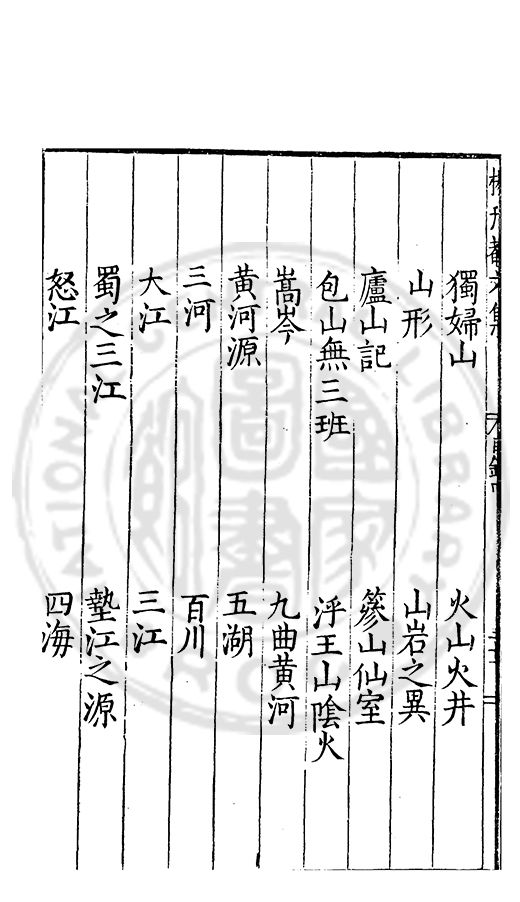 獨婦山 火山火井
山形 山岩之異
廬山記 篸山仙室
包山無三班 浮王山陰火
嵩岑 九曲黄河
黄河源 五湖
三河 百川
大江 三江
蜀之三江 墊江之源
怒江 四海